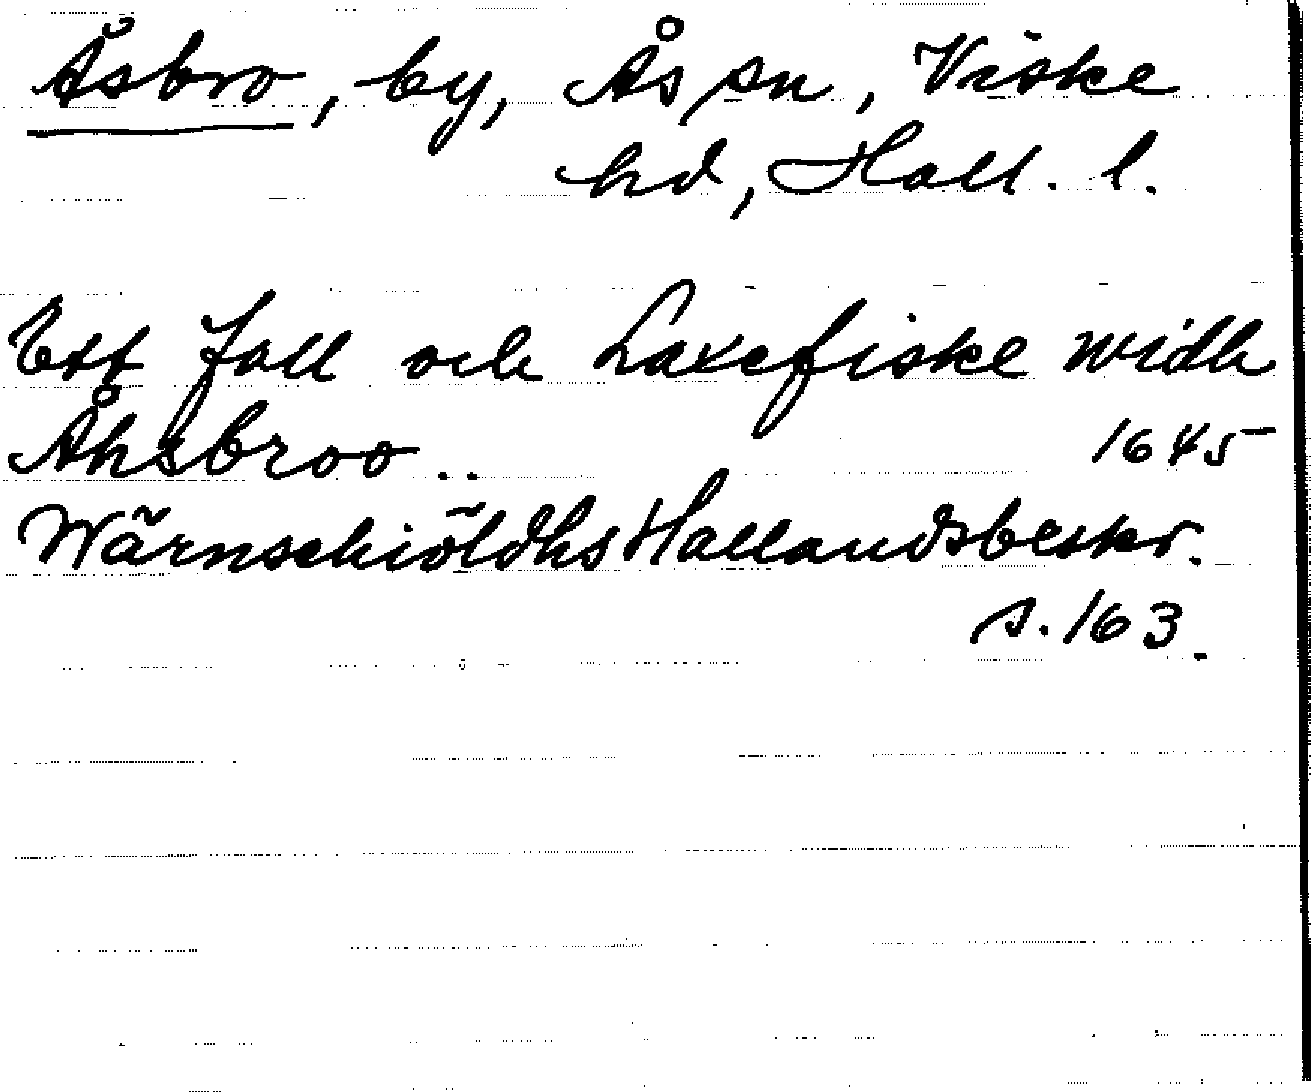 Åsbro, by, Ås sn, Viske
hd, Hall. l.
Ett fall och Laxefiske widh
Åhsbroo .. 1645
Wärnschiöldhs Hallandsbeskr.
s. 163.